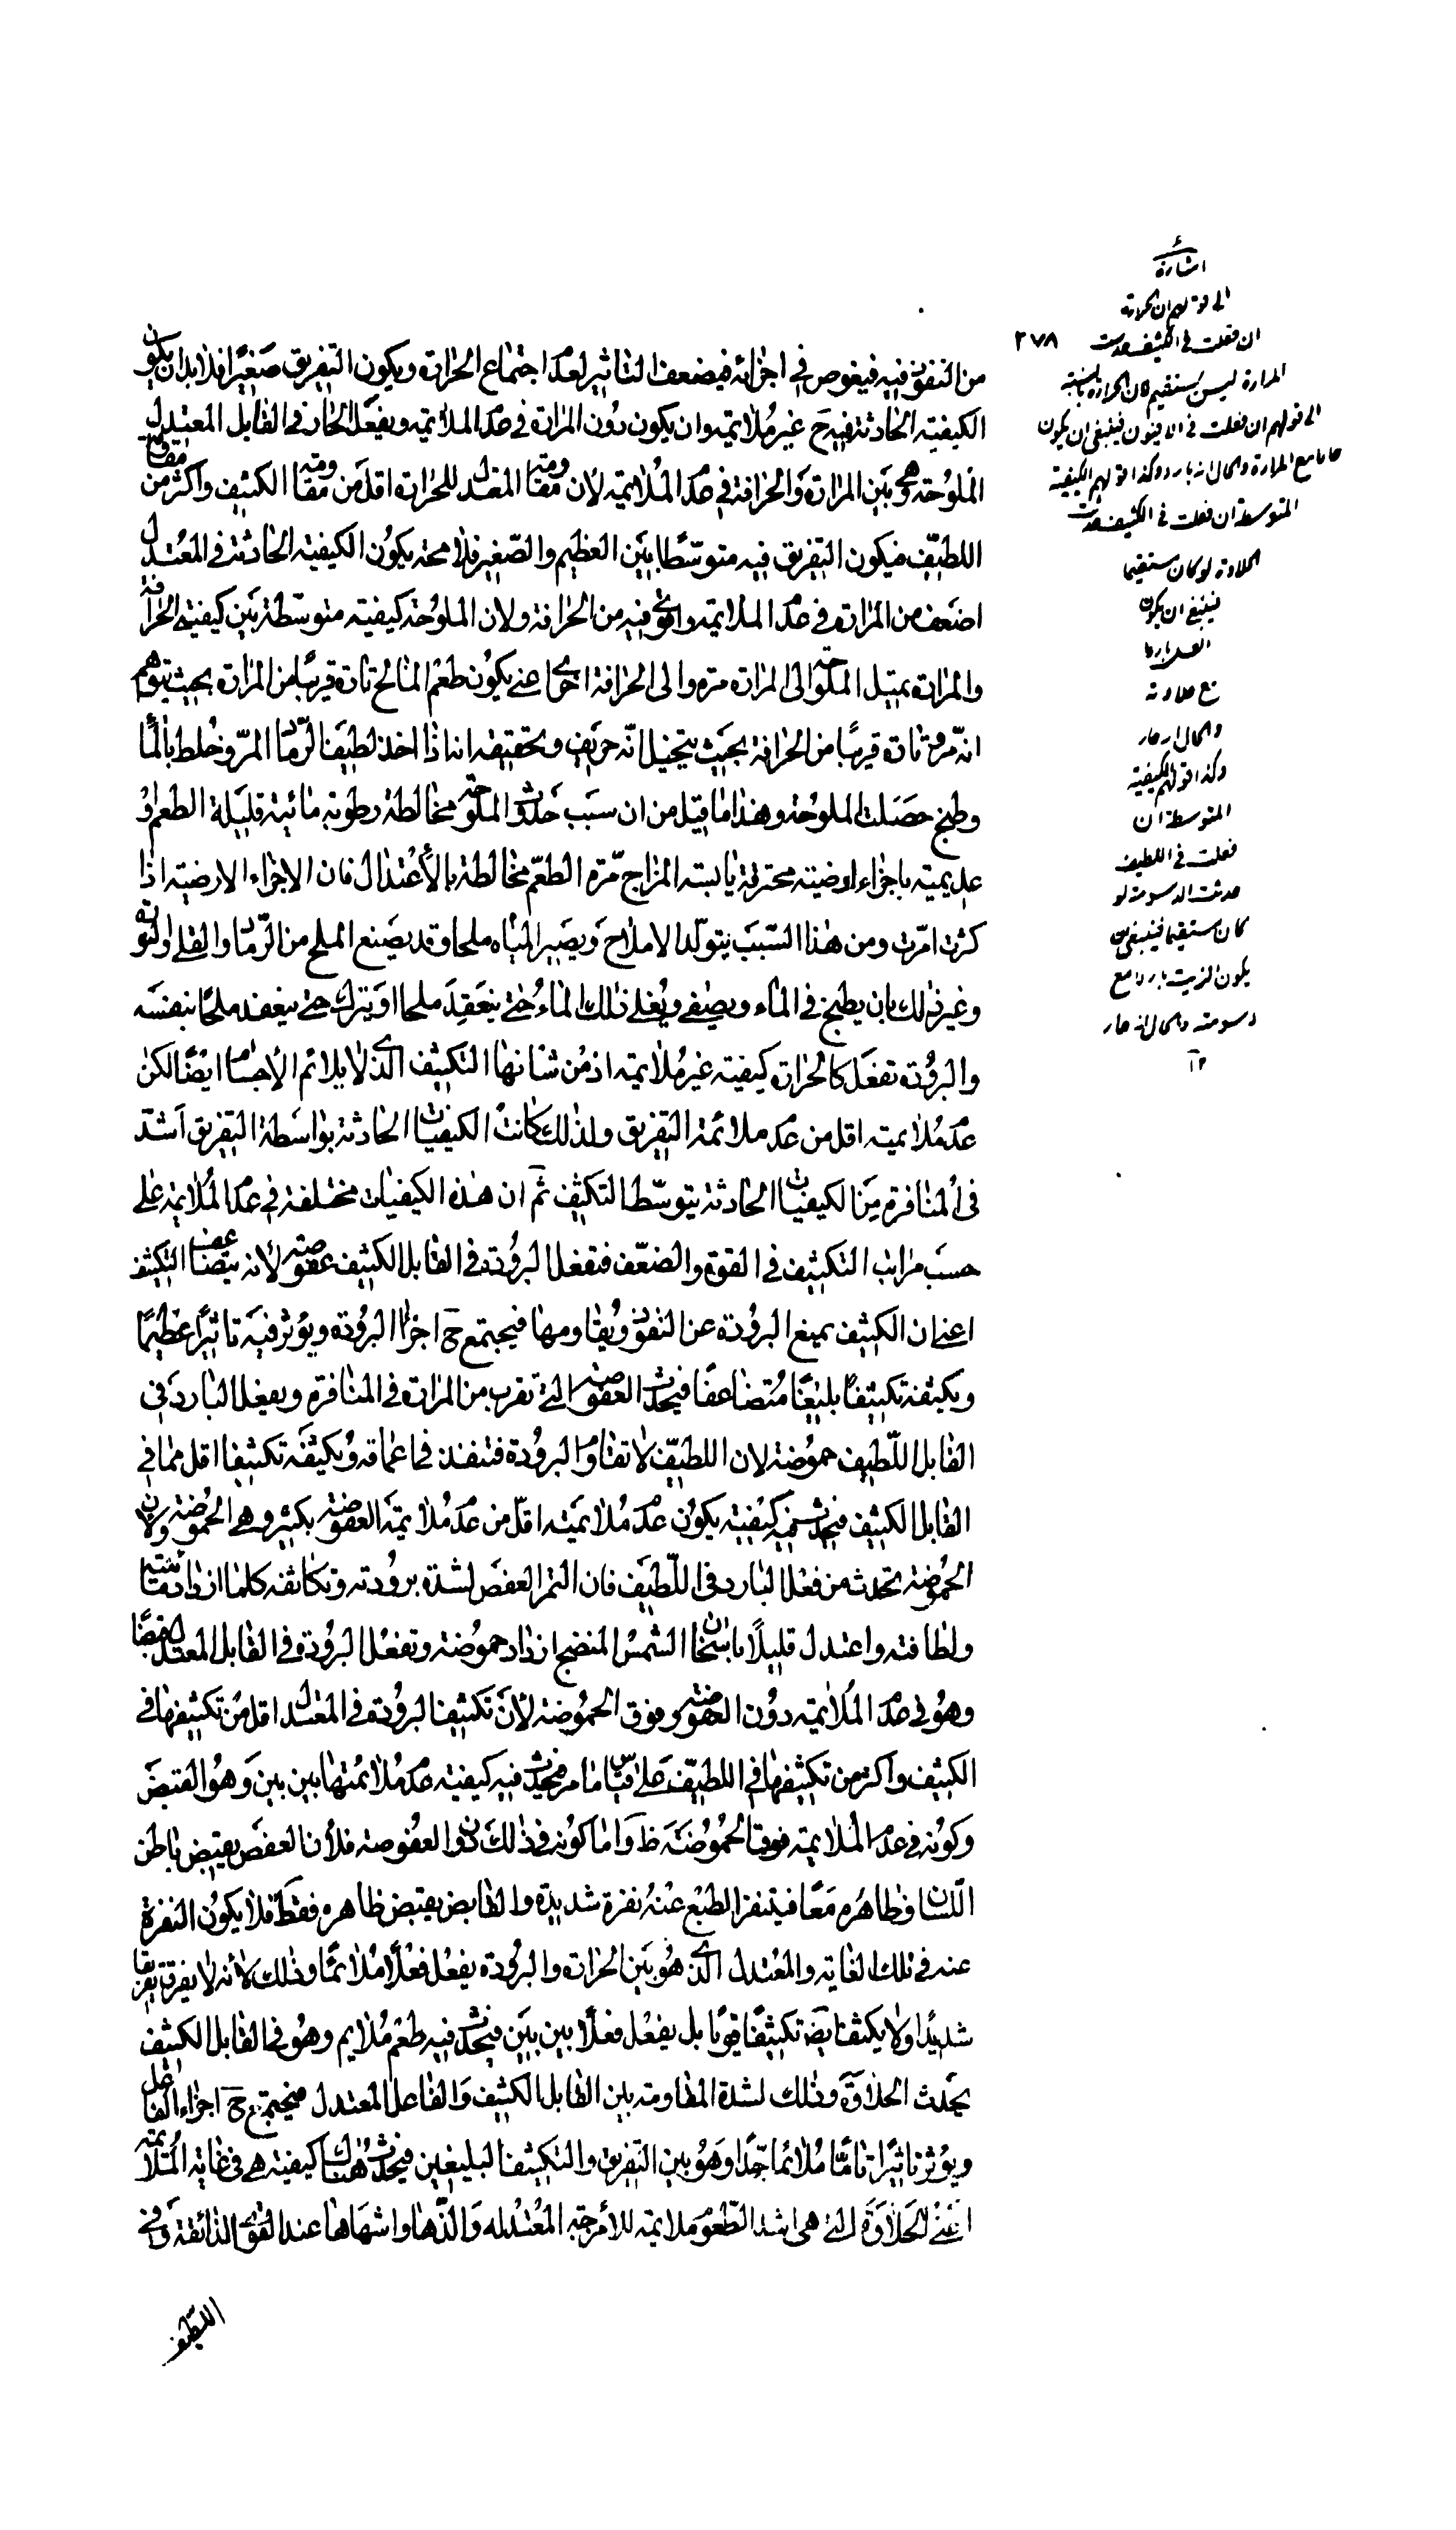 من النفوذ فيه فيغوص في اجزائه فيضعف التاثير لعدم اجتماع الحرارة ويكون التفريق صغيرا فلابد ان يكون
الكيفيته الحادثة فيه ح غير ملائمة وان يكون دون المرارة في عدم الملائمة ويفعل الحار في القابل المعتدل
الملوحة وهي بين المرارة والحرافة في عدم الملائمة لان مقاومة المعتدل للحرارة اقل من مقاومة الكثيف واكثر من مقاومة
اللطيف فيكون التفريق فيه متوسطا بين العظيم والصغير فلا محة يكون الكيفية الحادثة في المعتدل
اضعف من المرارة في عدم الملائمة واقوى فيه من الحرافة ولان الملوحة كيفية متوسطة بين كيفيتي الحرافة
والمرارة يميل الملوحة الى المرارة مرة والى الحرافة اخرى اعني يكون طعم المالح تارة قريبا من المرارة بحيث يتوهم
انه مر وتارة قريبا من الحرافة بحيث يتخيل انه حريف وتحقيقه انا اذا اخذ لطيف الرماد المر وخلط بالماء
وطبخ حصلت الملوحة وهذا ما قيل من ان سبب حدوث الملوحة مخالطة رطوبة مائية قليلة الطعم او
عديمته باجزاء ارضية محترقة يابسة المزاج مرة الطعم مخالطة بالاعتدال فان الاجزاء الارضية اذا
كثرت امرت ومن هذا السبب يتولد الاملاح ويصير المياه ملحا وقد يصنع الملح من الرماد والقلي والنورة
وغير ذلك بان يطبخ في الماء ويصفى ويغلى ذلك الماء حتى ينعقد ملحا او يترك حتى ينعقد ملحا بنفسه
والبرودة تفعل كالحرارة كيفية غير ملائمة اذ من شانها التكثيف الذي لا يلائم الاجسام ايضا لكن
عدم ملائمته اقل من عدم ملائمة التفريق ولذلك كانت الكيفيات الحادثة بواسطة التفريق اشد
في المنافرة من الكيفيات الحادثة بتوسط التكثيف ثم ان هذه الكيفيات مختلفة في عدم الملائمة على
حسب مراتب التكثيف في القوة والضعف فتفعل البرودة في القابل الكثيف عفوصة لانه يتضاعف التكثيف
اعني ان الكثيف يمنع البرودة عن النفوذ ويقاومها فيجتمع ح اجزاء البرودة ويؤثر فيه تاثيرا عظيما
ويكثفه تكثيفا بليغا متضاعفا فيحدث العفوصة التي تقرب من المرارة في المنافرة ويفعل البارد في
القابل اللطيف حموضة لان اللطيف لا تقاوم البرودة فتنفذ في اعماقه ويكثفه تكثيفا اقل مما في
القابل الكثيف فيحدث فيه كيفية يكون عدم ملائمته اقل من عدم ملائمة العفوصة بكثير وهي الحموضة ولان
الحموضة تحدث من فعل البارد في اللطيف فان الثمر العفص لشدة برودته وتكاثفه كلما ازداد مائيته
ولطافته واعتدل قليلا باسخان الشمس المنضج ازداد حموضة وتفعل البرودة في القابل المعتدل قبضا
وهو في عدم الملائمة دون العفوصة وفوق الحموضة لان تكثيف البرودة في المعتدل اقل من تكثيفها في
الكثيف واكثر من تكثيفها في اللطيف على قياس ما مر فيحدث فيه كيفية عدم ملائمتها بين بين وهو القبض
وكونه في عدم الملائمة فوق الحموضة ظ واما كونه في ذلك دون العفوصة فلان العفص يقبض باطن
اللسان وظاهره معا فيتنفر الطبع عنه نفرة شديدة والقابض يقبض ظاهره فقط فلا يكون النفرة
عنه في تلك الغاية والمعتدل الذي هو بين الحرارة والبرودة يفعل فعلا ملائما وذلك لانه لا يفرق تفريقا
شديدا ولا يكثف ايض تكثيفا قويا بل يفعل فعلا بين بين فيحدث فيه طعم ملايم وهو في القابل الكثيف
يحدث الحلاوة وذلك لشدة المقاومة بين القابل الكثيف والفاعل المعتدل فيجتمع ح اجزاء الفاعل
ويؤثر تاثيرا تاما ملائما جدا وهو بين التفريق والتكثيف البليغين فيحدث هناك كيفية هي في غاية الملائمة
اعني الحلاوة التي هي اشد الطعوم ملائمة للامزجة المعتدلة والذها واشهاها عند القوة الذائقة وفي
اللطيف
٢٧٨
اشارة
الى قولهم ان الحرارة
ان فعلت في الكثيف حدثت
المرارة ليس بمستقيم فان الحرارة بالنسبة
الى قولهم ان فعلت في الافيون فينبغي ان يكون
حارا مع المرارة والحال انه بارد وكذا قولهم الكيفية
المتوسطة ان فعلت في الكثيف حدثت
الحلاوة لو كان مستقيما
فينبغي ان يكون
العسل باردا
مع حلاوته
والحال انه حار
وكذا قولهم الكيفية
المتوسطة ان
فعلت في اللطيف
حدثت الدسومة لو
كان مستقيما فينبغي ان
يكون الزيت باردا مع
دسومته والحال انه حار
١٢